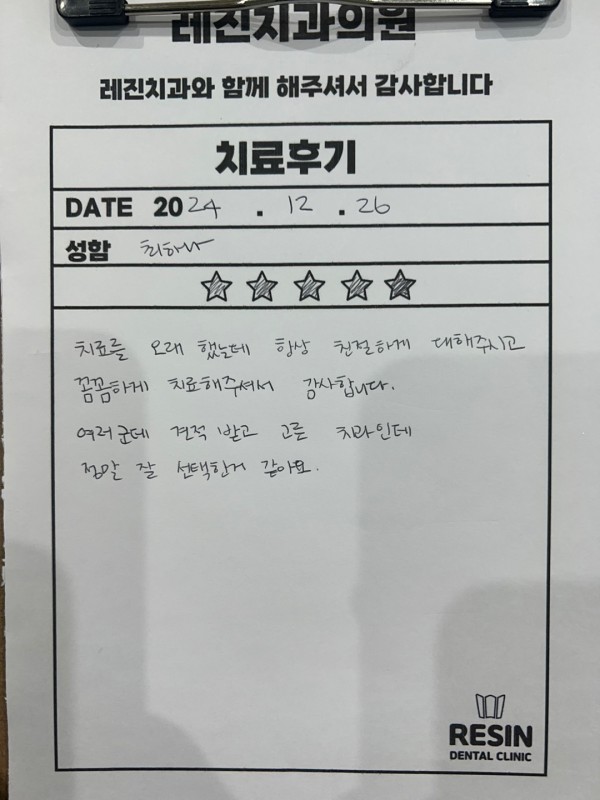 레진치과의원
레진치과와 함께 해주셔서 감사합니다
치료후기
DATE 2024 . 12 . 26
성함 최하나
치료를 오래 했는데 항상 친절하게 대해주시고
꼼꼼하게 치료해주셔서 감사합니다.
여러군데 견적 받고 고른 치과인데
정말 잘 선택한거 같아요.
RESIN
DENTAL CLINIC